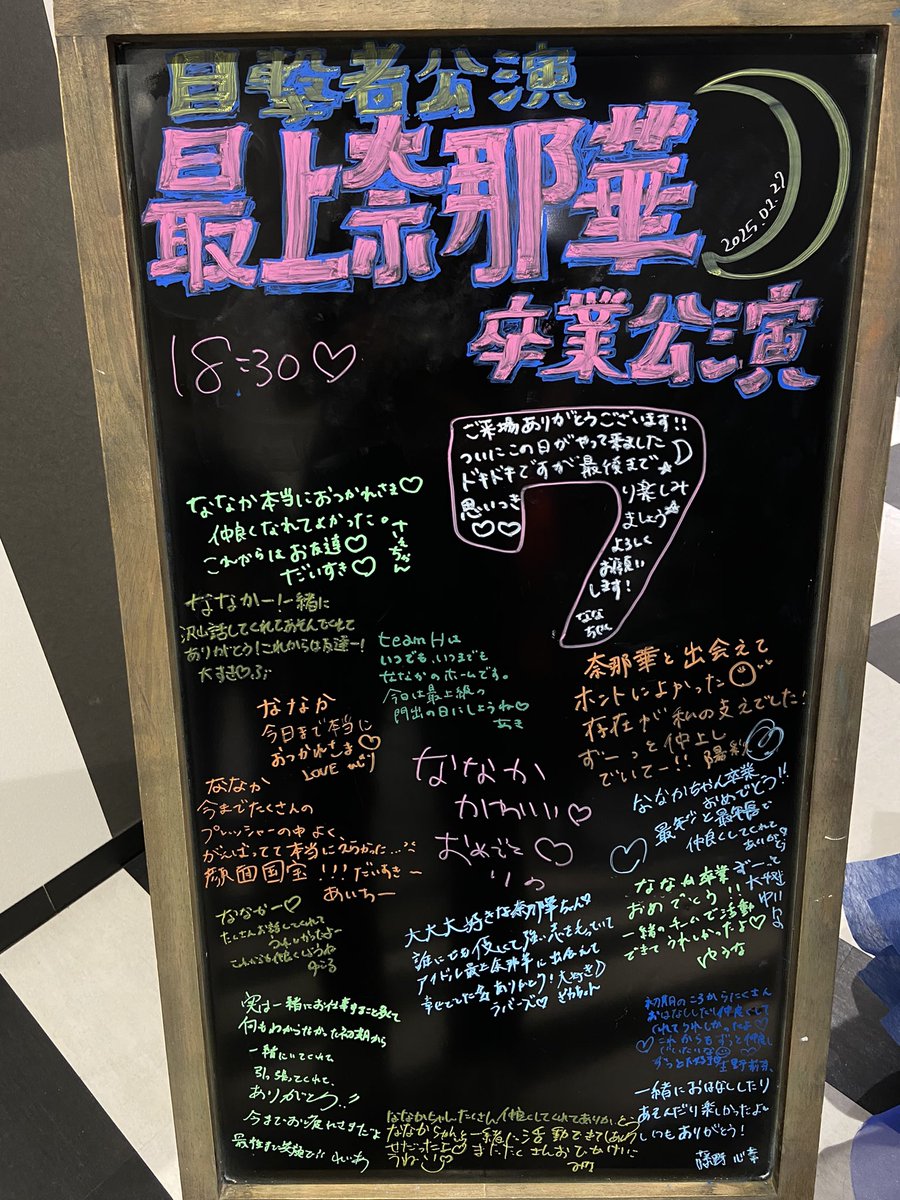 目撃者公演
最上奈那華
2025.02.27
卒業公演
18:30♡
ご来場ありがとうございます!!
ついにこの日がやって来ました☽
ドキドキですが最後まで☆
思いっきり楽しみ
♡♡ましょう☆
よろしく
お願い
します!
ななちゃん
ななか本当におつかれさま♡
仲良くなれてよかった。
これからはお友達♡
だいすき♡
さえちゃん
ななかー!一緒に
沢山話してくれてあそんでくれて
ありがとう!これからは友達ー!
大すき♡
team Hは
いつでも、いつまでも
ななかのホームです。
今日は最上級の
門出の日にしようね♡
あき
奈那華と出会えて
ホントによかった
存在が私の支えでした!
ずーっと仲よし
でいてー!!
ななか
今日まで本当に
おつかれさま♡
LOVE
ななか
かわいい♡
おめでと♡
りの
ななか
今までたくさんの
プレッシャーの中よく
がんばってて本当にえらかった....
顔面国宝!!!だいすきー
あいちー
ななかちゃん卒業
おめでとう!!
仲良くしてくれて
ありがとう
ななか卒業
おめでとう!!
一緒のチームで活動
できてうれしかったよ♡
ゆうな
ななかー♡
たくさんお話してくれて
うれしかったよー
これからも仲良くしようね
大大大好きな奈那華ちゃん♡
誰にでも優しくて強い志をもっていて
アイドル最上奈那華に出会えて
幸せでした ありがとう!大好き♪
ラバーズ♡
初期のころからたくさん
おはなししたり仲良くして
くれてうれしかったよ♡
これからもずっと仲良し
でいたいな
ずっと大好き
実は一緒にお仕事すること長くて
何もわからなかった初期から
一緒にいてくれて
引っ張ってくれて、
ありがとう!!
今までお疲れさまだよ
れいあ
一緒におはなししたり
あそんだり楽しかったよ
いつもありがとう!
藤野 心葉
ななかちゃんたくさん仲良くしてくれてありがとう
ななかちゃんと一緒に活動できてしあわ
せだったよ♡またたくさんおでかけに